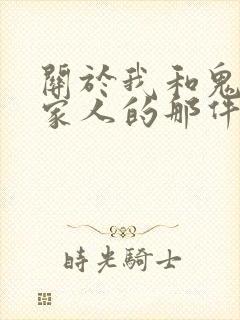 關於我和鬼
家人的那件
時光騎士